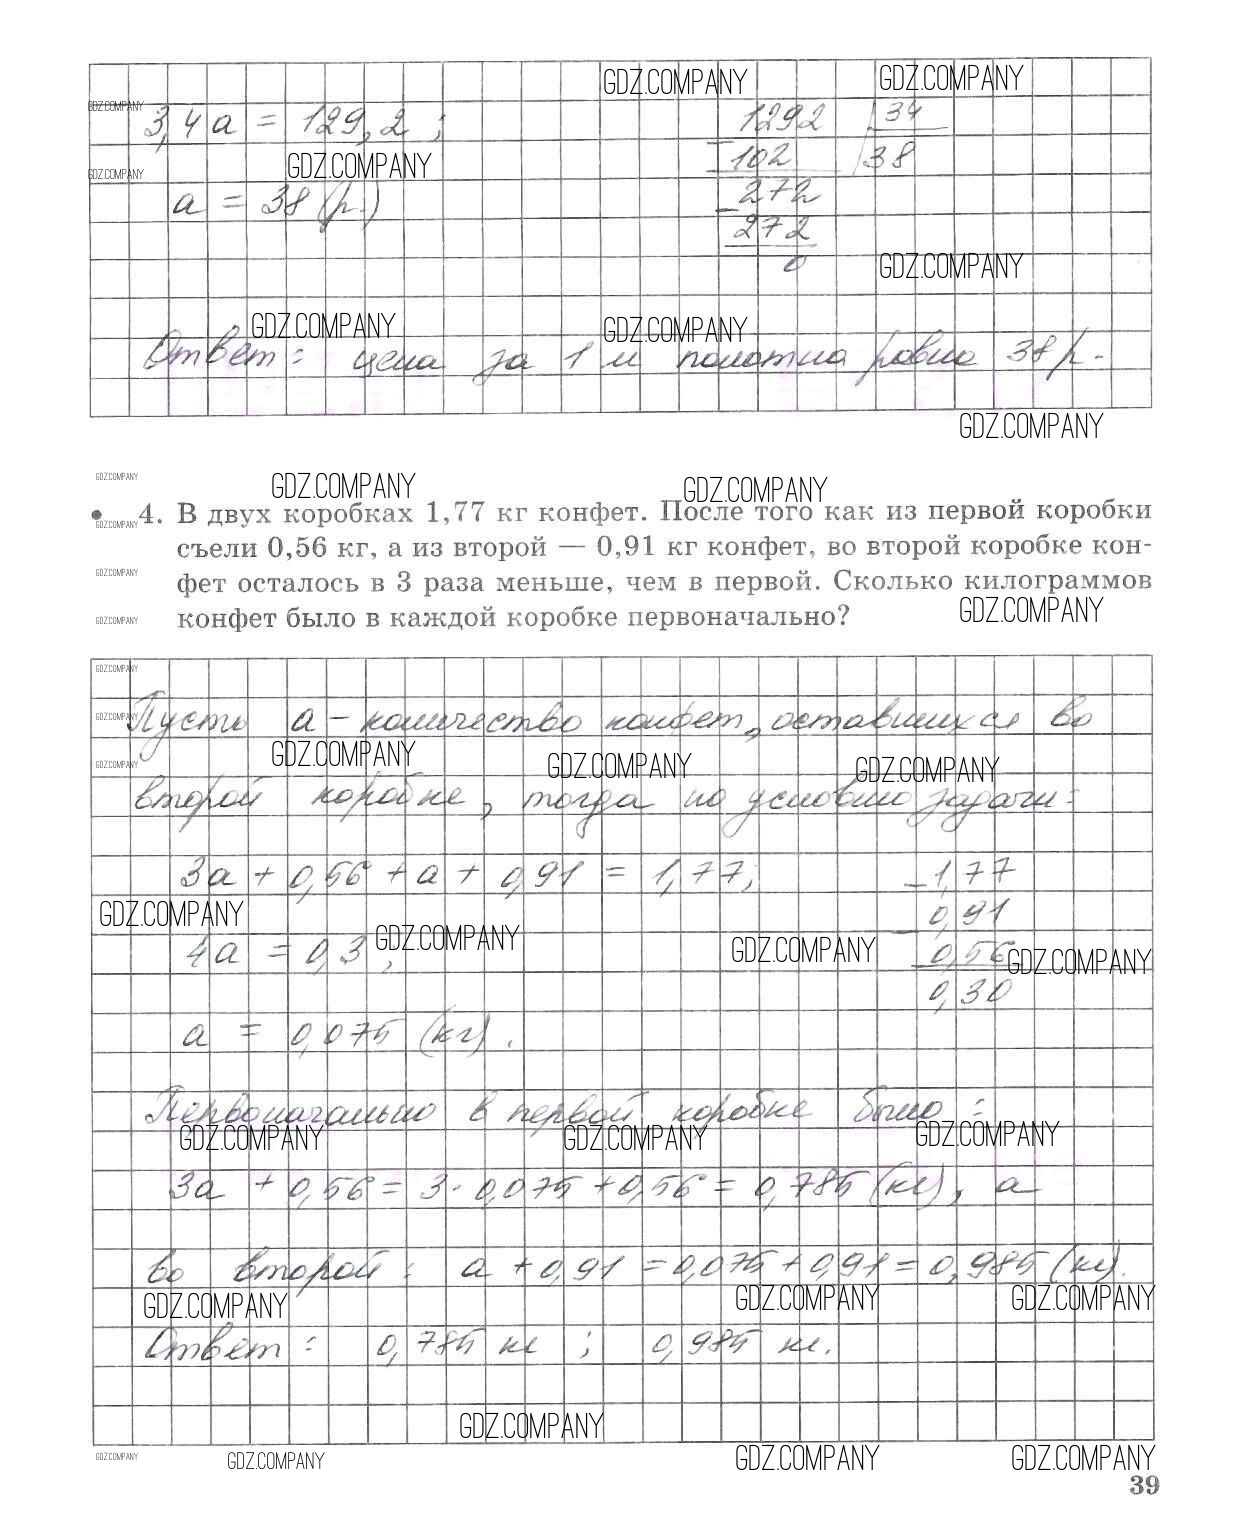 GDZ.COMPANY GDZ.COMPANY
GDZ.COMPANY
3,4a = 129,2 ; 1292 | 34
GDZ.COMPANY
GDZ.COMPANY
102 38
a = 38 (р.) 272
272
0
GDZ.COMPANY
GDZ.COMPANY GDZ.COMPANY
Ответ: цена за 1 м полотна равна 38 р.
GDZ.COMPANY
GDZ.COMPANY
GDZ.COMPANY GDZ.COMPANY
• 4. В двух коробках 1,77 кг конфет. После того как из первой коробки
GDZ.COMPANY
съели 0,56 кг, а из второй — 0,91 кг конфет, во второй коробке кон-
GDZ.COMPANY
фет осталось в 3 раза меньше, чем в первой. Сколько килограммов
GDZ.COMPANY
конфет было в каждой коробке первоначально?
GDZ.COMPANY
GDZ.COMPANY
GDZ.COMPANY
Пусть a – количество конфет, оставшихся во
GDZ.COMPANY GDZ.COMPANY GDZ.COMPANY
GDZ.COMPANY
второй коробке, тогда по условию задачи:
3a + 0,56 + a + 0,91 = 1,77; - 1,77
GDZ.COMPANY
- 0,91
4a = 0,3 ; 0,56
GDZ.COMPANY GDZ.COMPANY GDZ.COMPANY
0,30
a = 0,075 (кг).
Первоначально в первой коробке было :
GDZ.COMPANY GDZ.COMPANY GDZ.COMPANY
3a + 0,56 = 3 · 0,075 + 0,56 = 0,785 (кг), а
во второй : a + 0,91 = 0,075 + 0,91 = 0,985 (кг).
GDZ.COMPANY GDZ.COMPANY GDZ.COMPANY
Ответ : 0,785 кг ; 0,985 кг.
GDZ.COMPANY
GDZ.COMPANY GDZ.COMPANY GDZ.COMPANY GDZ.COMPANY
39